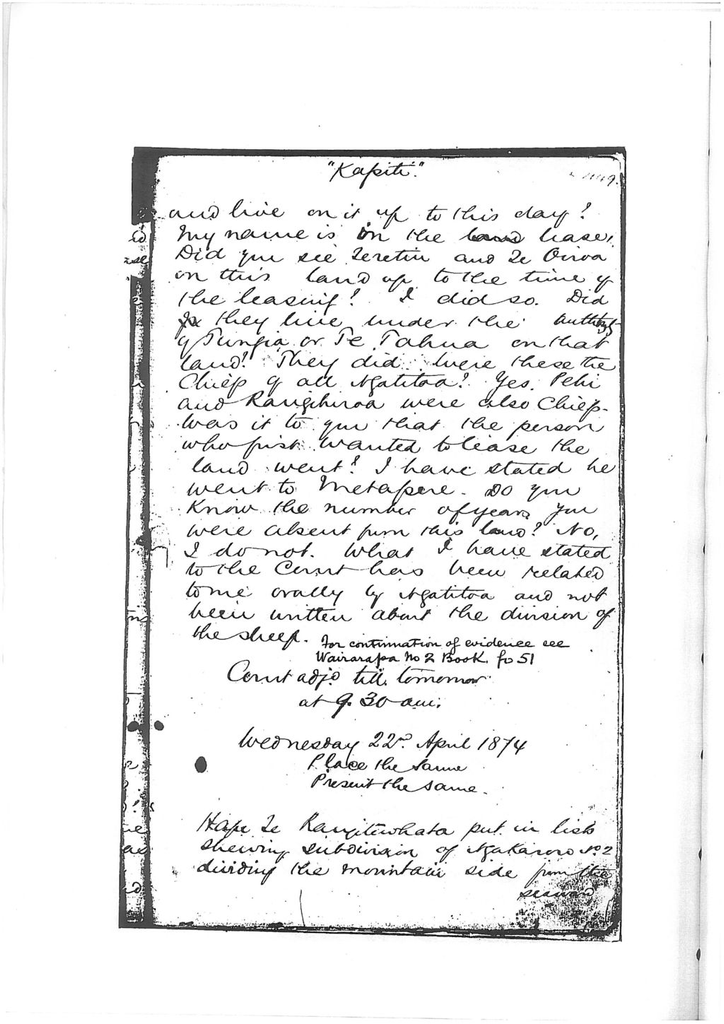 "Kapiti"
and live on it up to this day?
My name is in the lease.
Did you see Teretiu and Te Ouoa
on this land up to the time of
the leasing? I did so. Did
they live under the authority
of Tungia or Te Tahua on that
land? They did. Were these the
Chiefs of all Ngatitoa? Yes. Pehi
and Rangihiroa were also Chiefs.
Was it to you that the person
who first wanted to lease the
land went? I have stated he
went to Metapere. Do you
Know the number of years you
were absent from this land? No,
I do not. What I have stated
to the Court has been related
to me orally by Ngatitoa and not
been written about the division of
the sheep. For continuation of evidence see
Wairarapa No 2 Book. fo 51
Court adjd. till tomorrow
at 9.30 am.
Wednesday 22nd April 1874
Place the same
Present the same.
Hape Te Rangitewhata put in list
shewing subdivision of Ngakaroro No 2
dividing the mountain side from the
seaward